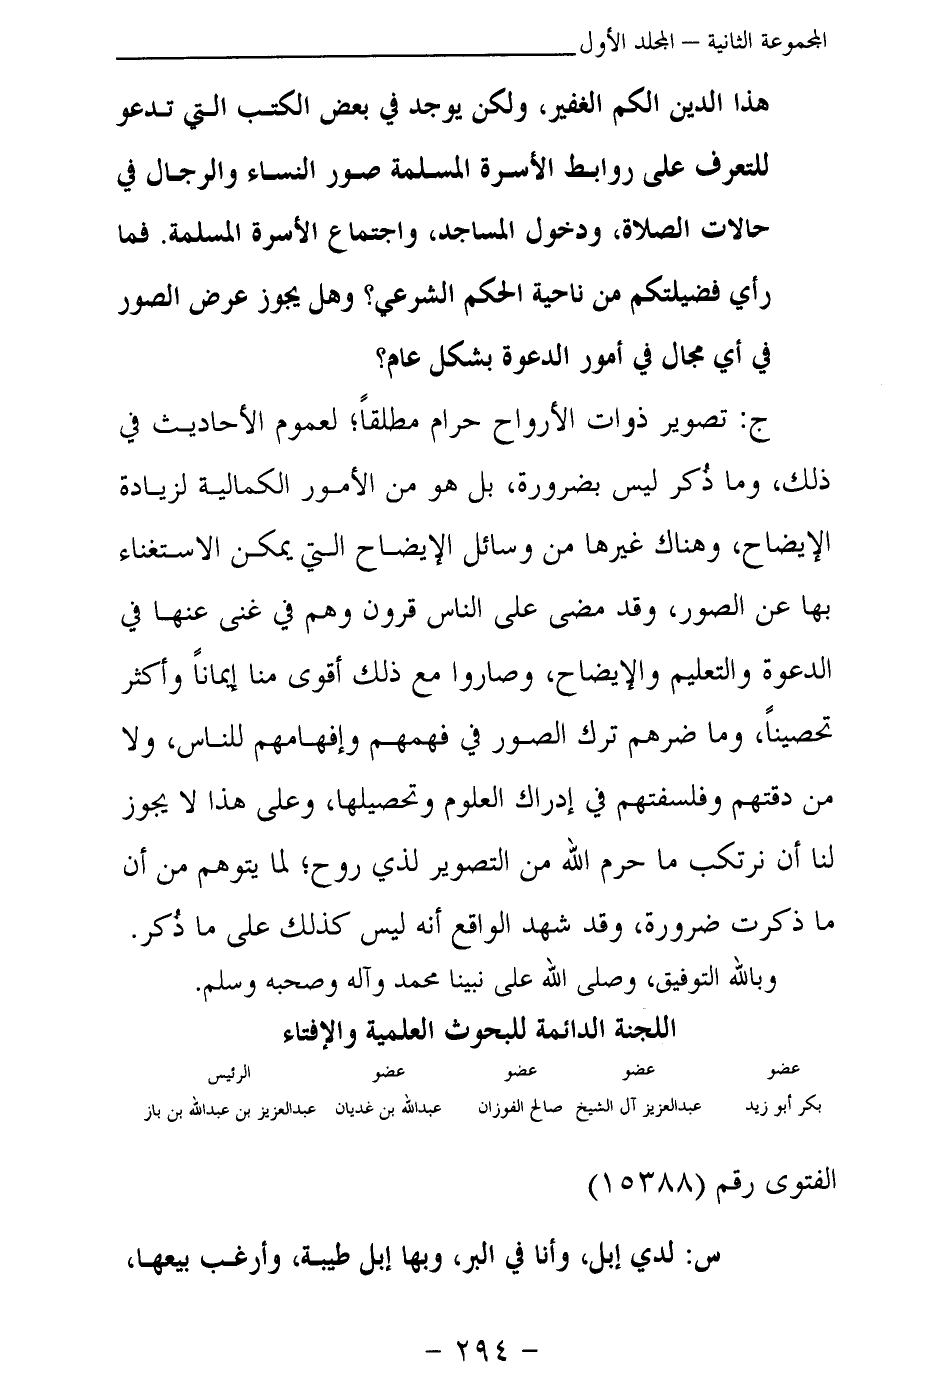 المجموعة الثانية – المجلد الأول
هذا الدين الكم الغفير، ولكن يوجد في بعض الكتب التي تدعو
للتعرف على روابط الأسرة المسلمة صور النساء والرجال في
حالات الصلاة، ودخول المساجد، واجتماع الأسرة المسلمة. فما
رأي فضيلتكم من ناحية الحكم الشرعي؟ وهل يجوز عرض الصور
في أي مجال في أمور الدعوة بشكل عام؟
ج: تصوير ذوات الأرواح حرام مطلقاً؛ لعموم الأحاديث في
ذلك، وما ذُكر ليس بضرورة، بل هو من الأمور الكمالية لزيادة
الإيضاح، وهناك غيرها من وسائل الإيضاح التي يمكن الاستغناء
بها عن الصور، وقد مضى على الناس قرون وهم في غنى عنها في
الدعوة والتعليم والإيضاح، وصاروا مع ذلك أقوى منا إيماناً وأكثر
تحصيناً، وما ضرهم ترك الصور في فهمهم وإفهامهم للناس، ولا
من دقتهم وفلسفتهم في إدراك العلوم وتحصيلها، وعلى هذا لا يجوز
لنا أن نرتكب ما حرم الله من التصوير لذي روح؛ لما يتوهم من أن
ما ذكرت ضرورة، وقد شهد الواقع أنه ليس كذلك على ما ذُكر.
وبالله التوفيق، وصلى الله على نبينا محمد وآله وصحبه وسلم.
اللجنة الدائمة للبحوث العلمية والإفتاء
عضو عضو عضو عضو الرئيس
بكر أبو زيد عبدالعزيز آل الشيخ صالح الفوزان عبدالله بن غديان عبدالعزيز بن عبدالله بن باز
الفتوى رقم (١٥٣٨٨)
س: لدي إبل، وأنا في البر، وبها إبل طيبة، وأرغب بيعها،
- ٢٩٤ -